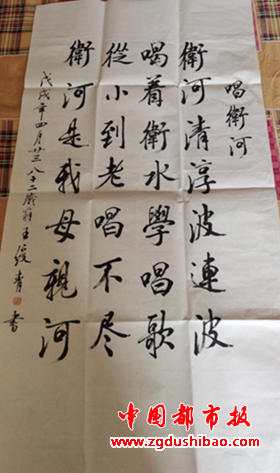 唱衛河
衛河清淳波連波
喝着衛水學唱歌
從小到老唱不尽
衛河是我母親河
戊戌年四月廿三八十二歲翁王 青書
中国都市报
www.zgdushibao.com